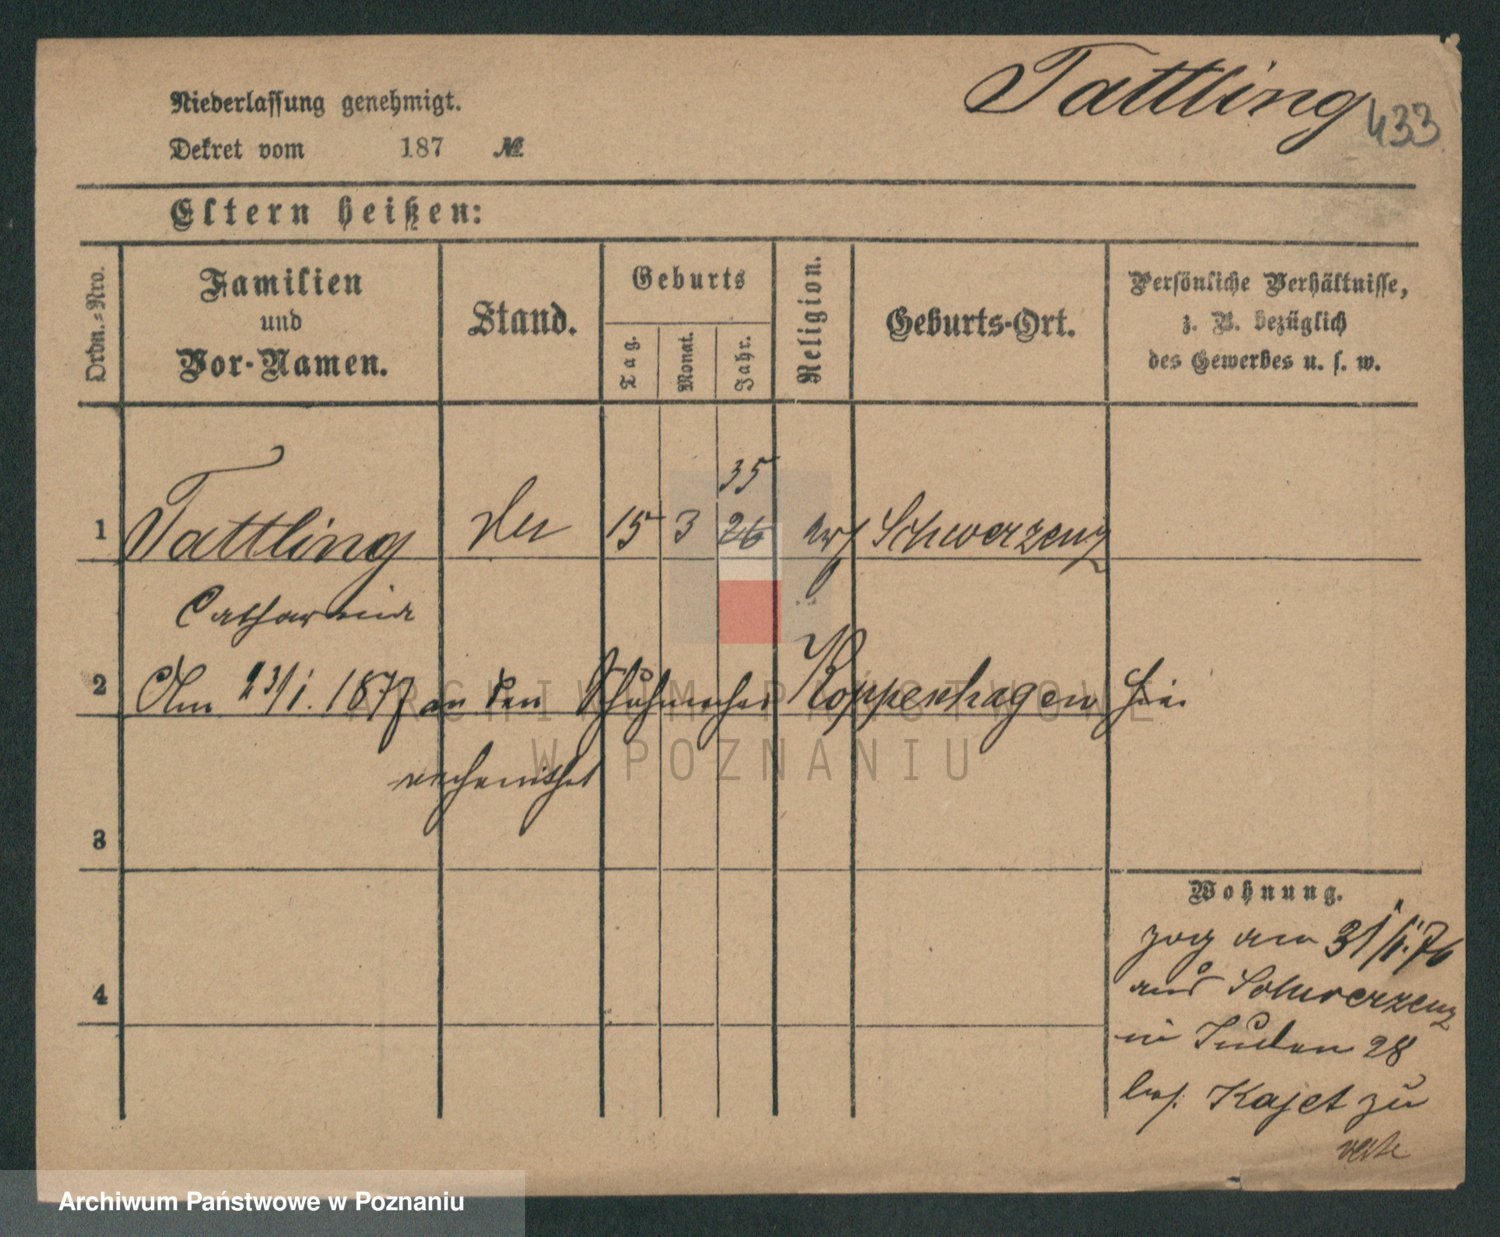 Tattling
433
Niederlassung genehmigt.
Dekret vom 187 №
Eltern heißen:
Ordn.=Nro.
Familien
und
Vor-Namen.
Stand.
Geburts
Tag.
Monat.
Jahr.
Religion.
Geburts-Ort.
Persönliche Verhältnisse,
z. B. bezüglich
des Gewerbes u. s. w.
35
1 Tattling 15 3 26 Schwerzenz
Catharina
2 Am 23/1. 1877 an den Schuhmacher Koppenhagen hier
verheirathet
3
Wohnung.
zog am 31/1.76
aus Schwerzenz
in Juden 28
bei Kajet zu
4
ARCHIWUM PAŃSTWOWE
W POZNANIU
Archiwum Państwowe w Poznaniu